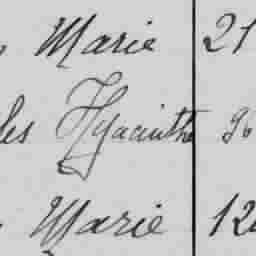 Marie 21
les Hyacinthe 96
Marie 12